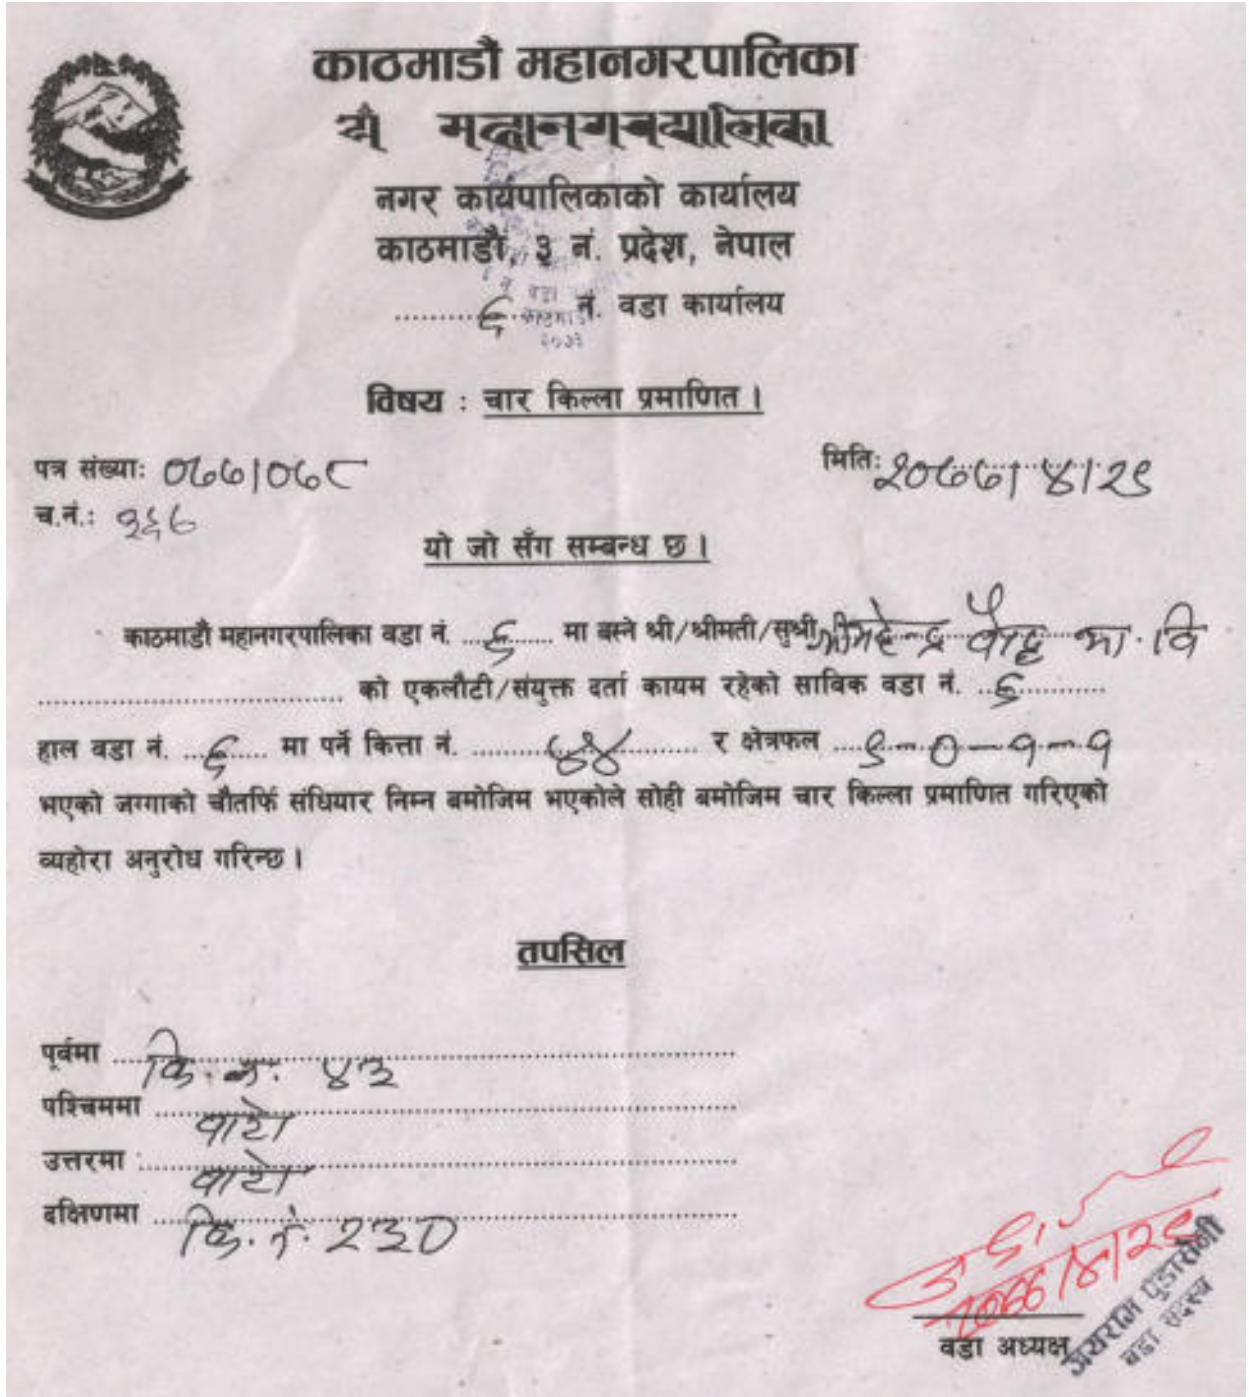 काठमाडौं महानगरपालिका
महानगरपालिका
नगर कार्यपालिकाको कार्यालय
काठमाडौं, ३ नं. प्रदेश, नेपाल
६ नं. वडा कार्यालय
विषय : चार किल्ला प्रमाणित ।
पत्र संख्याः ०७७/०७८
मितिः २०७७/४/२९
च.नं.: १६७
यो जो सँग सम्बन्ध छ ।
काठमाडौं महानगरपालिका वडा नं. ६ मा बस्ने श्री/श्रीमती/सुश्री श्री महेन्द्र बौद्ध मा. वि
को एकलौटी/संयुक्त दर्ता कायम रहेको साविक वडा नं. ६
हाल वडा नं. ६ मा पर्ने कित्ता नं. ४४ र क्षेत्रफल ९-०-१-१
भएको जग्गाको चौतर्फि संधियार निम्न बमोजिम भएकोले सोही बमोजिम चार किल्ला प्रमाणित गरिएको
व्यहोरा अनुरोध गरिन्छ ।
तपसिल
पूर्वमा कि. नं. ४३
पश्चिममा बाटो
उत्तरमा बाटो
दक्षिणमा कि. नं. २३०
२०७७/४/२९
वडा अध्यक्ष
जयराम पुडासैनी
वडा सदस्य